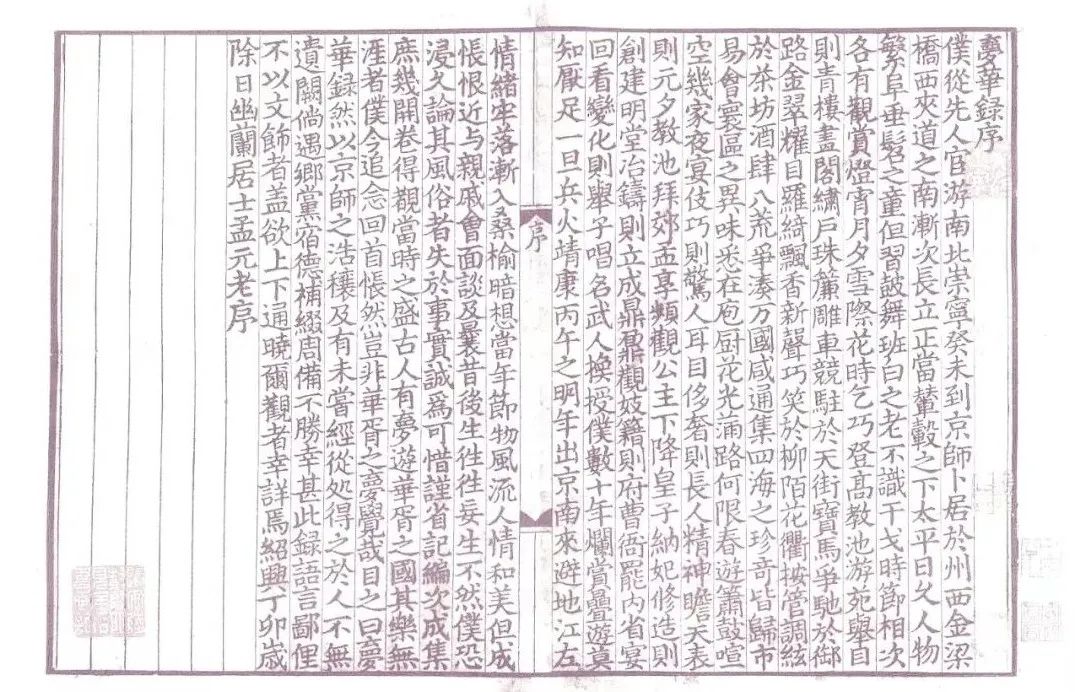 夢華録序
僕從先人宦游南北崇寧癸未到京師卜居於州西金梁
橋西夾道之南漸次長立正當輦轂之下太平日久人物
繁阜垂髫之童但習皷舞班白之老不識干戈時節相次
各有觀賞燈宵月夕雪際花時乞巧登髙教池游苑舉目
則青樓畫閣繡戸珠簾雕車競駐於天街寳馬爭馳於御
路金翠耀目羅綺飄香新聲巧笑於柳陌花衢按管調絃
於茶坊酒肆八荒爭湊万國咸通集四海之珎奇皆歸市
易會寰區之異味悉在庖廚花光滿路何限春遊簫鼓喧
空幾家夜宴伎巧則驚人耳目侈奢則長人精神瞻天表
則元夕教池拜郊孟享頻觀公主下降皇子納妃修造則
創建明堂冶鑄則立成鼎鼐觀妓籍則府曹衙罷内省宴
回看變化則舉子唱名武人換授僕數十年爛賞疊遊莫
知厭足一旦兵火靖康丙午之明年出京南來避地江左
序
情緒牢落漸入桑榆暗想當年節物風流人情和美但成
悵恨近与親戚會面談及曩昔後生徃徃妄生不然僕恐
浸久論其風俗者失於事實誠爲可惜謹省記編次成集
庶幾開卷得觀當時之盛古人有夢遊華胥之國其樂無
涯者僕今追念回首悵然豈非華胥之夢覺哉目之曰夢
華録然以京師之浩穰及有未嘗經從処得之於人不無
遺闕倘遇鄉黨宿德補綴周備不勝幸甚此録語言鄙俚
不以文飾者盖欲上下通曉爾觀者幸詳焉紹興丁卯歲
除日幽蘭居士孟元老序